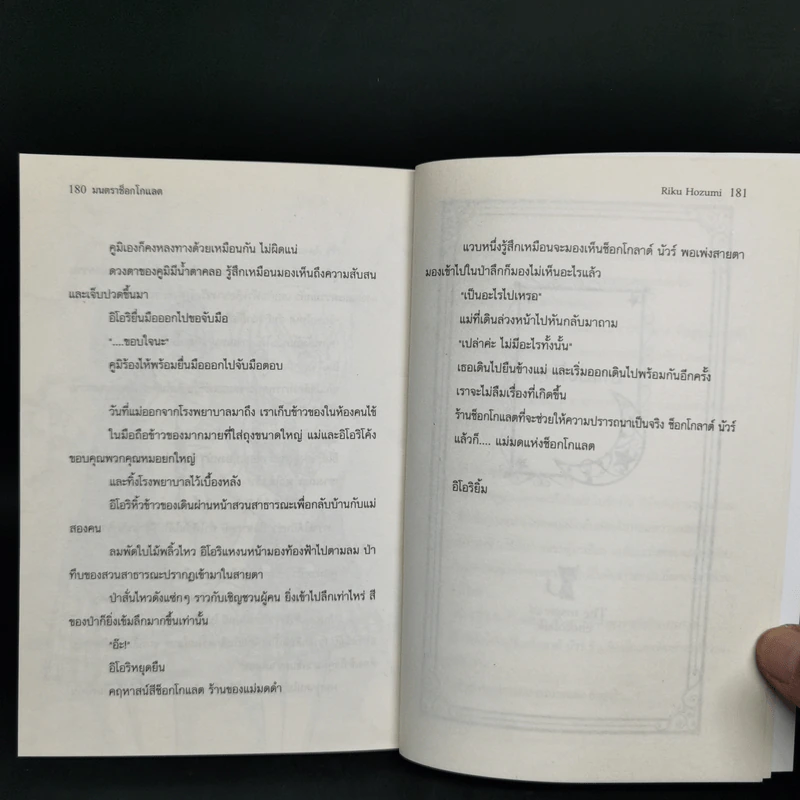 180 มนตราช็อกโกแลต
คูมิเองก็คงหลงทางด้วยเหมือนกัน ไม่ผิดแน่
ดวงตาของคูมิมีน้ำตาคลอ รู้สึกเหมือนมองเห็นถึงความสับสน
และเจ็บปวดขึ้นมา
อิโอริยื่นมือออกไปขอจับมือ
"....ขอบใจนะ"
คูมิร้องไห้พร้อมยื่นมือออกไปจับมือตอบ
วันที่แม่ออกจากโรงพยาบาลมาถึง เราเก็บข้าวของในห้องคนไข้
ในมือถือข้าวของมากมายที่ใส่ถุงขนาดใหญ่ แม่และอิโอริโค้ง
ขอบคุณพวกคุณหมอยกใหญ่
และทิ้งโรงพยาบาลไว้เบื้องหลัง
อิโอริหิ้วข้าวของเดินผ่านหน้าสวนสาธารณะเพื่อกลับบ้านกับแม่
สองคน
ลมพัดใบไม้พลิ้วไหว อิโอริแหงนหน้ามองท้องฟ้าไปตามลม ป่า
ทึบของสวนสาธารณะปรากฏเข้ามาในสายตา
ป่าสั่นไหวดังแซ่กๆ ราวกับเชิญชวนผู้คน ยิ่งเข้าไปลึกเท่าไหร่ สี
ของป่าก็ยิ่งเข้มลึกมากขึ้นเท่านั้น
"อ๊ะ!"
อิโอริหยุดยืน
คฤหาสน์สีช็อกโกแลต ร้านของแม่มดดำ
Riku Hozumi 181
แวบหนึ่งรู้สึกเหมือนจะมองเห็นช็อกโกลาต์ นัวร์ พอเพ่งสายตา
มองเข้าไปในป่าลึกก็มองไม่เห็นอะไรแล้ว
"เป็นอะไรไปเหรอ"
แม่ที่เดินล่วงหน้าไปหันกลับมาถาม
"เปล่าค่ะ ไม่มีอะไรทั้งนั้น"
เธอเดินไปยืนข้างแม่ และเริ่มออกเดินไปพร้อมกันอีกครั้ง
เราจะไม่ลืมเรื่องที่เกิดขึ้น
ร้านช็อกโกแลตที่จะช่วยให้ความปรารถนาเป็นจริง ช็อกโกลาต์ นัวร์
แล้วก็.... แม่มดแห่งช็อกโกแลต
อิโอริยิ้ม